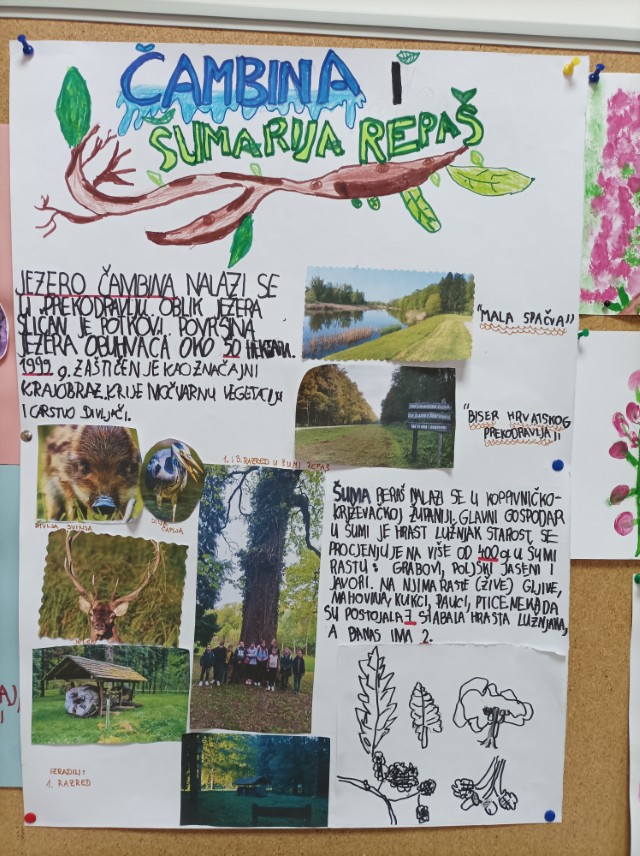 ČAMBINA I
ŠUMARIJA REPAŠ
JEZERO ČAMBINA NALAZI SE
U PREKODRAVLJU. OBLIK JEZERA
SLIČAN JE POTKOVI. POVRŠINA
JEZERA OBUHVAĆA OKO 50 HEKTARA.
1999 g. ZAŠTIĆEN JE KAO ZNAČAJNI
KRAJOBRAZ. KRIJE MOČVARNU VEGETACIJU
I CARSTVO DIVLJAČI.
"MALA SPAČVA"
"BISER HRVATSKOG
PREKODRAVLJA"
1. i 3. RAZRED U ŠUMI REPAŠ
DIVLJA SVINJA
SIVA
ČAPLJA
JELEN
ŠUMA REPAŠ NALAZI SE U KOPRIVNIČKO-
KRIŽEVAČKOJ ŽUPANIJI. GLAVNI GOSPODAR
U ŠUMI JE HRAST LUŽNJAK STAROST SE
PROCJENJUJE NA VIŠE OD 400 g. U ŠUMI
RASTU: GRABOVI, POLJSKI JASENI I
JAVORI. NA NJIMA RASTE (ŽIVE) GLJIVE,
MAHOVINA, KUKCI, PAUCI, PTICE. NEKADA
SU POSTOJALA 7 STABALA HRASTA LUŽNJAKA,
A DANAS IMA 2.
IZRADILI:
1. RAZRED